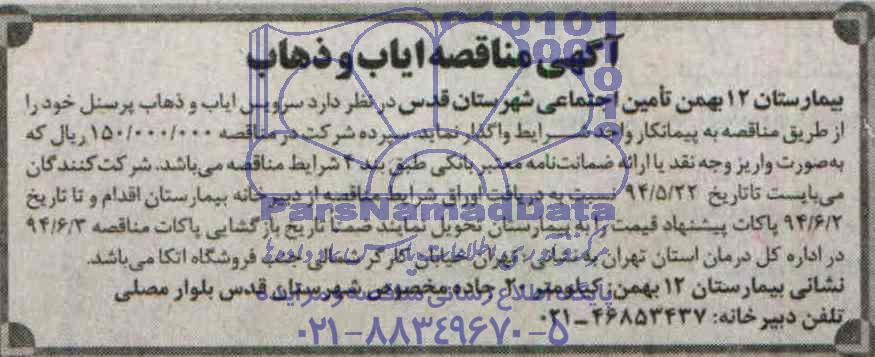 آگهی مناقصه ایاب و ذهاب
بیمارستان ۱۲ بهمن تأمین اجتماعی شهرستان قدس در نظر دارد سرویس ایاب و ذهاب پرسنل خود را
از طریق مناقصه به پیمانکار واجد شــرایط واگذار نماید. سپرده شرکت در مناقصه ۱۵۰/۰۰۰/۰۰۰ ریال که
به‌صورت واریز وجه نقد یا ارائه ضمانت‌نامه معتبر بانکی طبق بند ۴ شرایط مناقصه می‌باشد. شرکت‌کنندگان
می‌بایست تاتاریخ ۹۴/۵/۲۲ نسبت به دریافت اوراق شرایط مناقصه از دبیرخانه بیمارستان اقدام و تا تاریخ
۹۴/۶/۲ پاکات پیشنهاد قیمت را به بیمارستان تحویل نمایند ضمناً تاریخ بازگشایی پاکات مناقصه ۹۴/۶/۳
در اداره کل درمان استان تهران به نشانی: تهران خیابان کارگر شمالی جنب فروشگاه اتکا می‌باشد.
نشانی بیمارستان ۱۲ بهمن: کیلومتر ۲۰ جاده مخصوص شهرستان قدس بلوار مصلی
تلفن دبیرخانه: ۴۶۸۵۳۴۳۷-۰۲۱
ParsNamadData
پایگاه اطلاع رسانی مناقصه و مزایده
۰۲۱-۸۸۳۴۹۶۷۰-۵